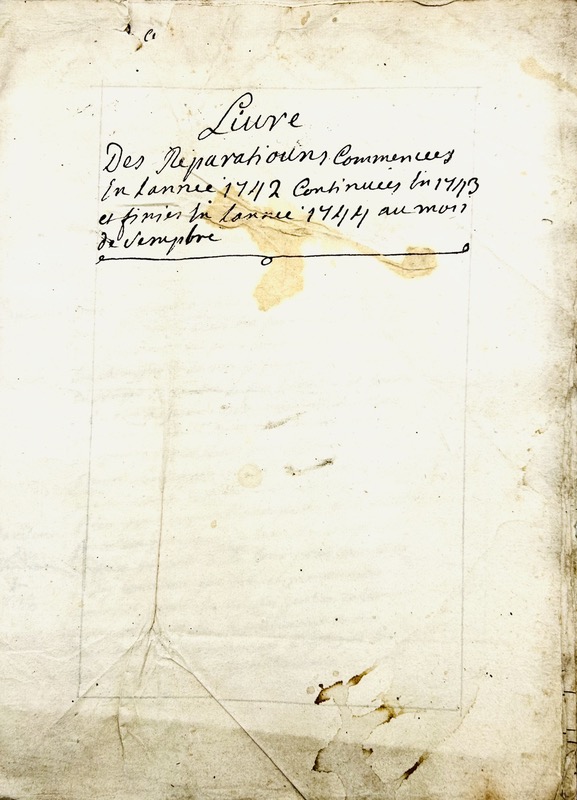 Livre
Des Reparatiouns Commencees
En Lannee 1742 Continuees En 1743
et finies En Lannee 1744 au mois
de Sempbre